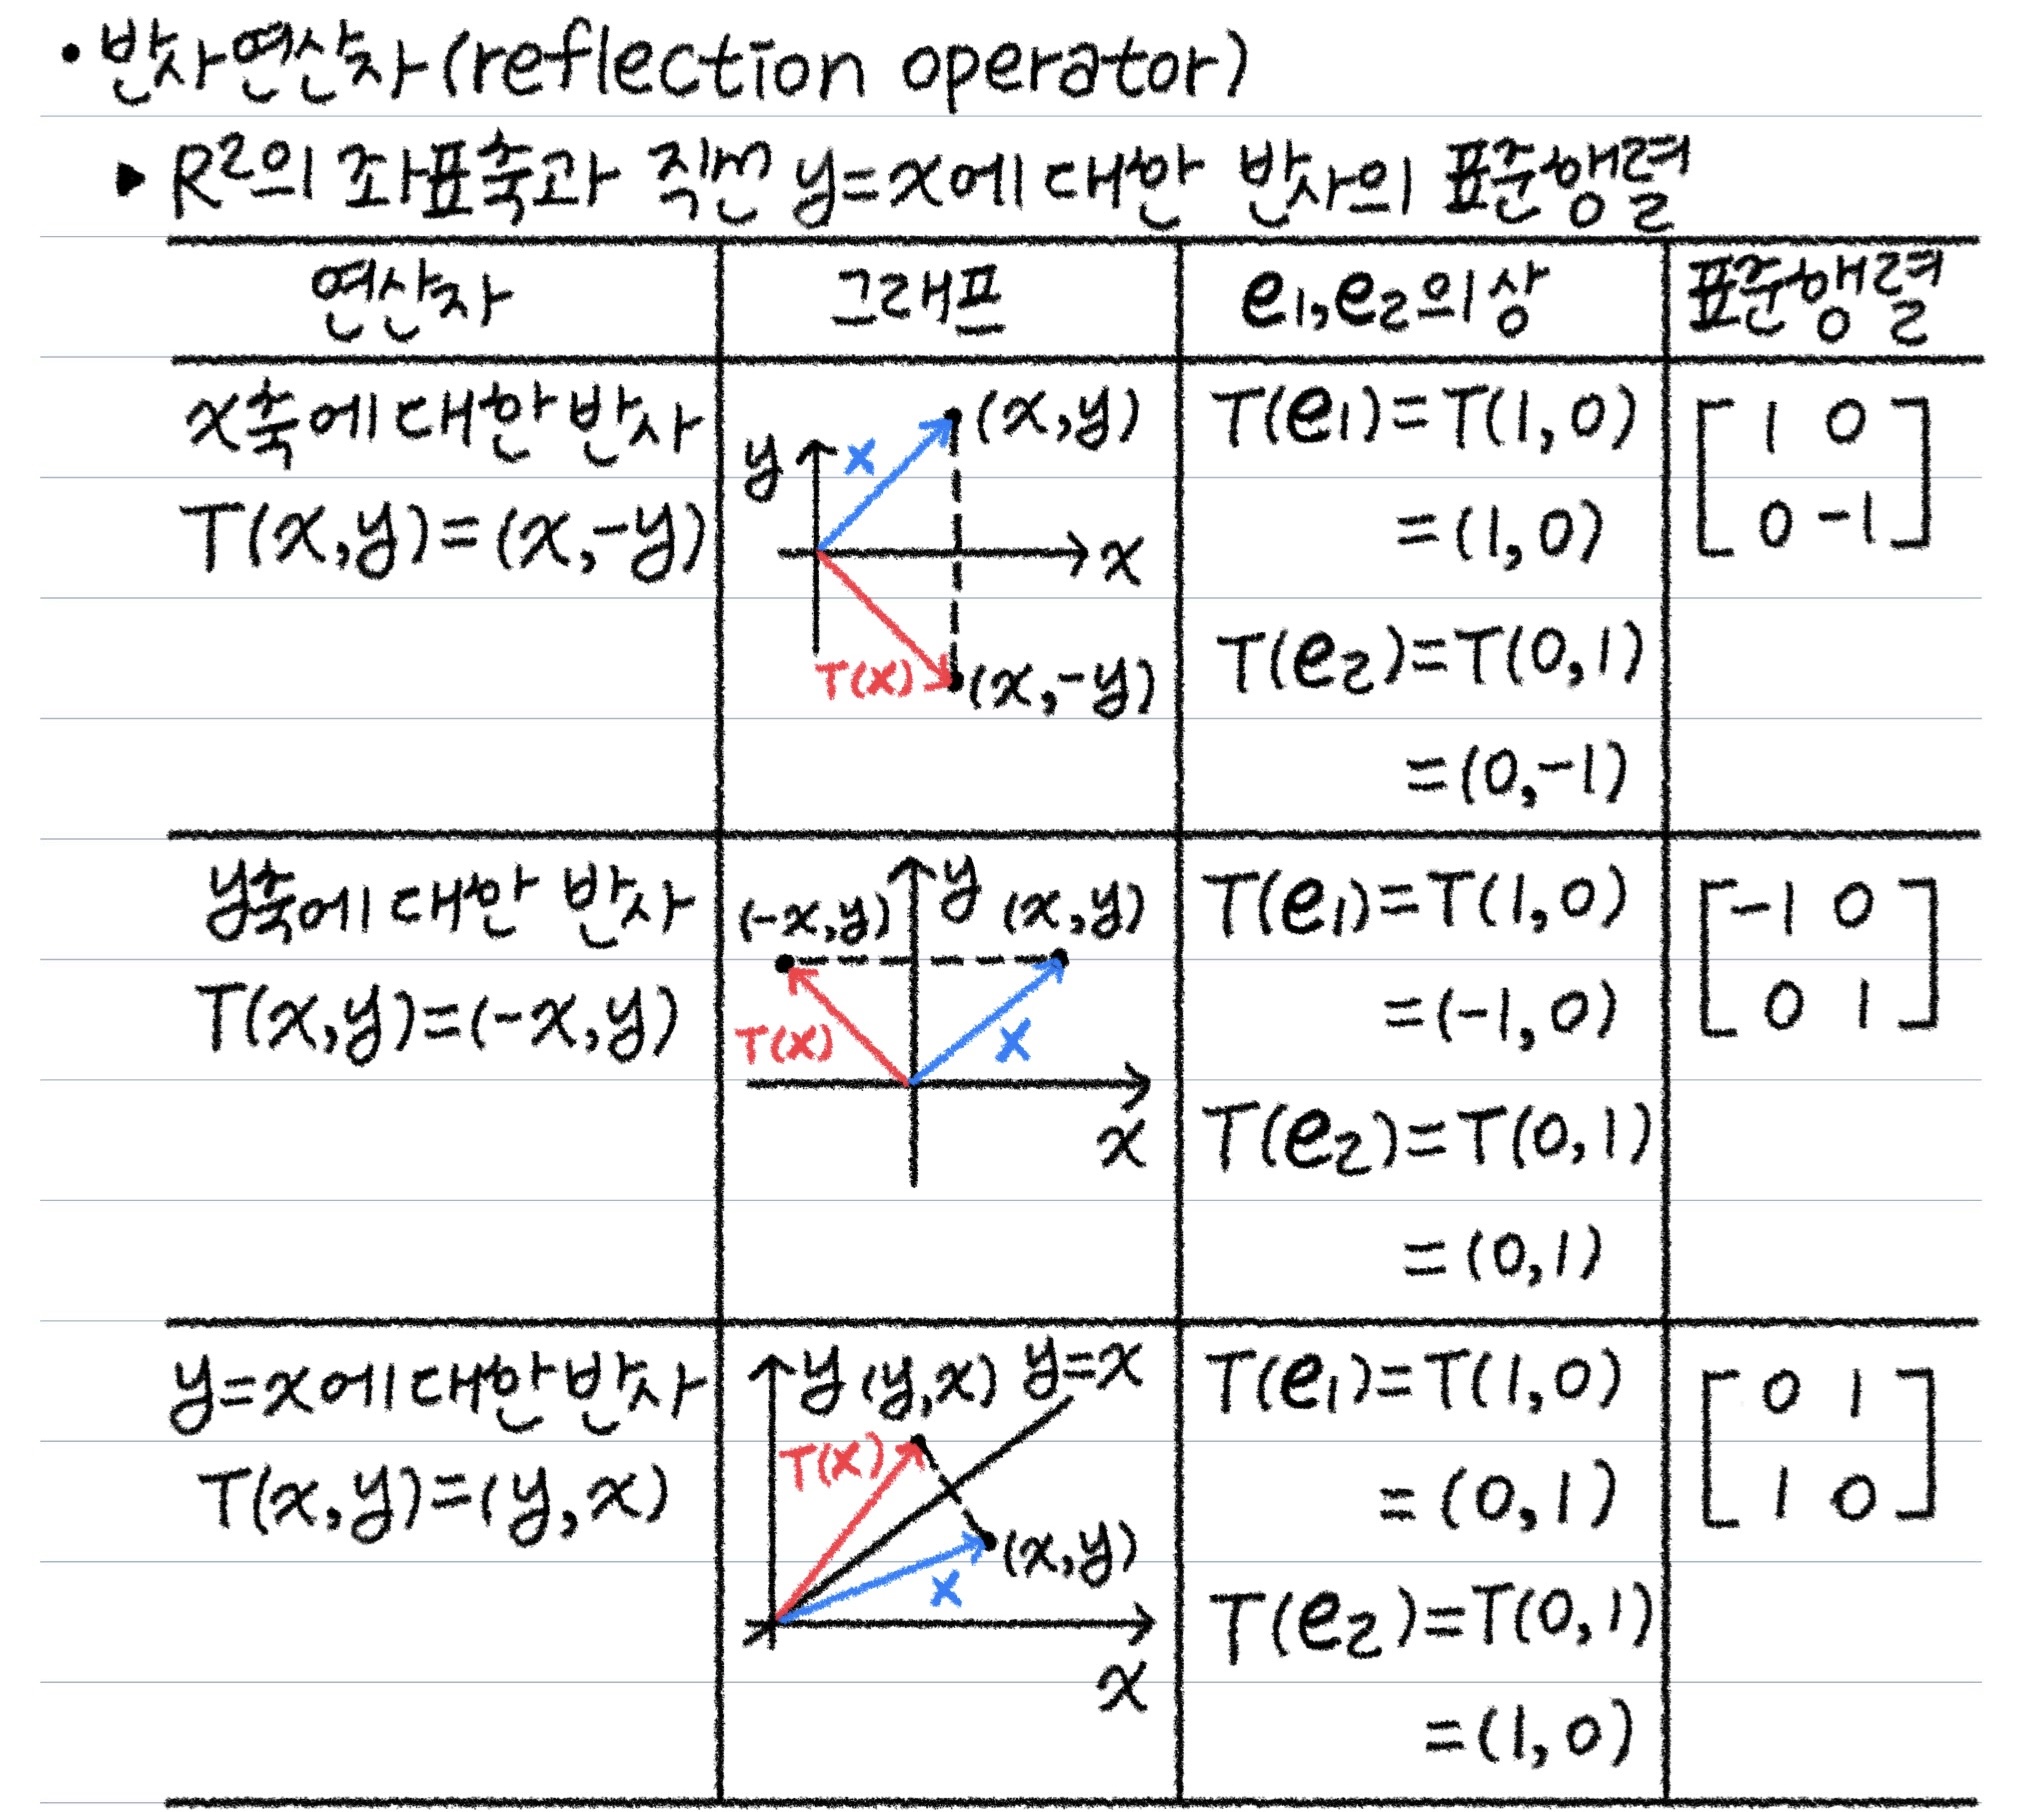 • 반사연산자(reflection operator)
▶ R²의 좌표축과 직선 y=x에 대한 반사의 표준행렬
연산자 그래프 e₁,e₂의 상 표준행렬
x축에 대한 반사
T(x,y)=(x,-y)
(x,y)
y
x
x
T(x)
(x,-y)
T(e₁)=T(1,0)
=(1,0)
T(e₂)=T(0,1)
=(0,-1)
1 0
0 -1
y축에 대한 반사
T(x,y)=(-x,y)
y
(-x,y) (x,y)
T(x) x
x
T(e₁)=T(1,0)
=(-1,0)
T(e₂)=T(0,1)
=(0,1)
-1 0
0 1
y=x에 대한 반사
T(x,y)=(y,x)
y (y,x) y=x
T(x)
(x,y)
x
x
T(e₁)=T(1,0)
=(0,1)
T(e₂)=T(0,1)
=(1,0)
0 1
1 0